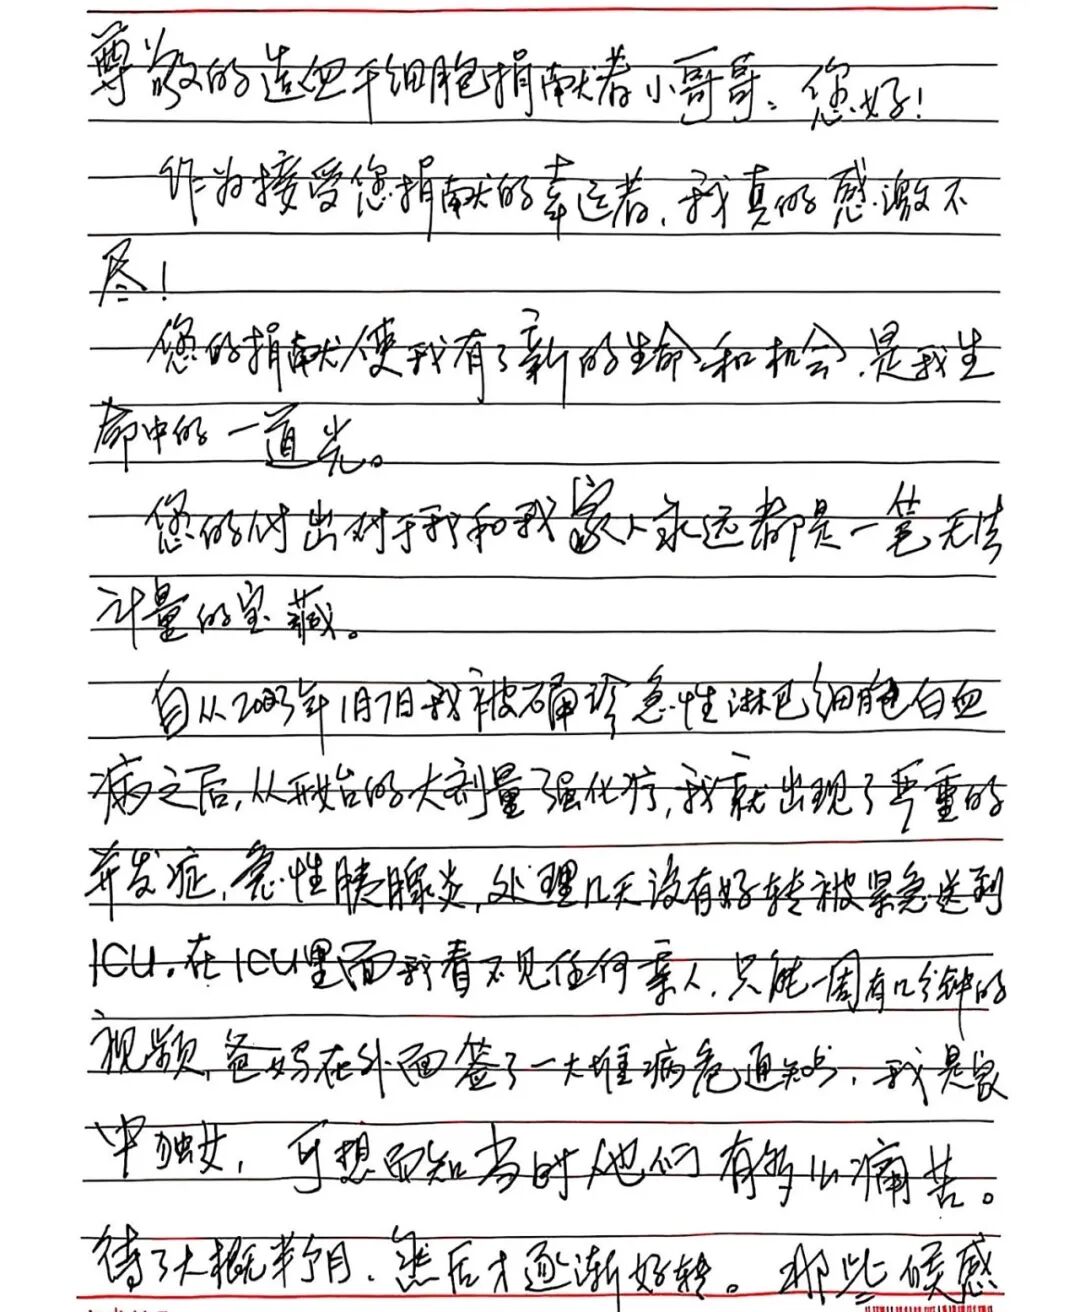 尊敬的造血干细胞捐献者小哥哥：您好！
作为接受您捐献的幸运者，我真的感激不
尽！
您的捐献使我有了新的生命和机会，是我生
命中的一道光。
您的付出对于我和我家人永远都是一笔无法
计量的宝藏。
自从2023年1月7日我被确诊急性淋巴细胞白血
病之后，从开始的大剂量强化疗，我就出现了严重的
并发症，急性胰腺炎，处理几天没有好转被紧急送到
ICU。在ICU里面我看不见任何亲人，只能一周有几分钟的
视频，爸妈在外面签了一大堆病危通知书，我是家
中独女，可想而知当时他们有多么痛苦。
待了大概半个月，然后才逐渐好转。那些候感